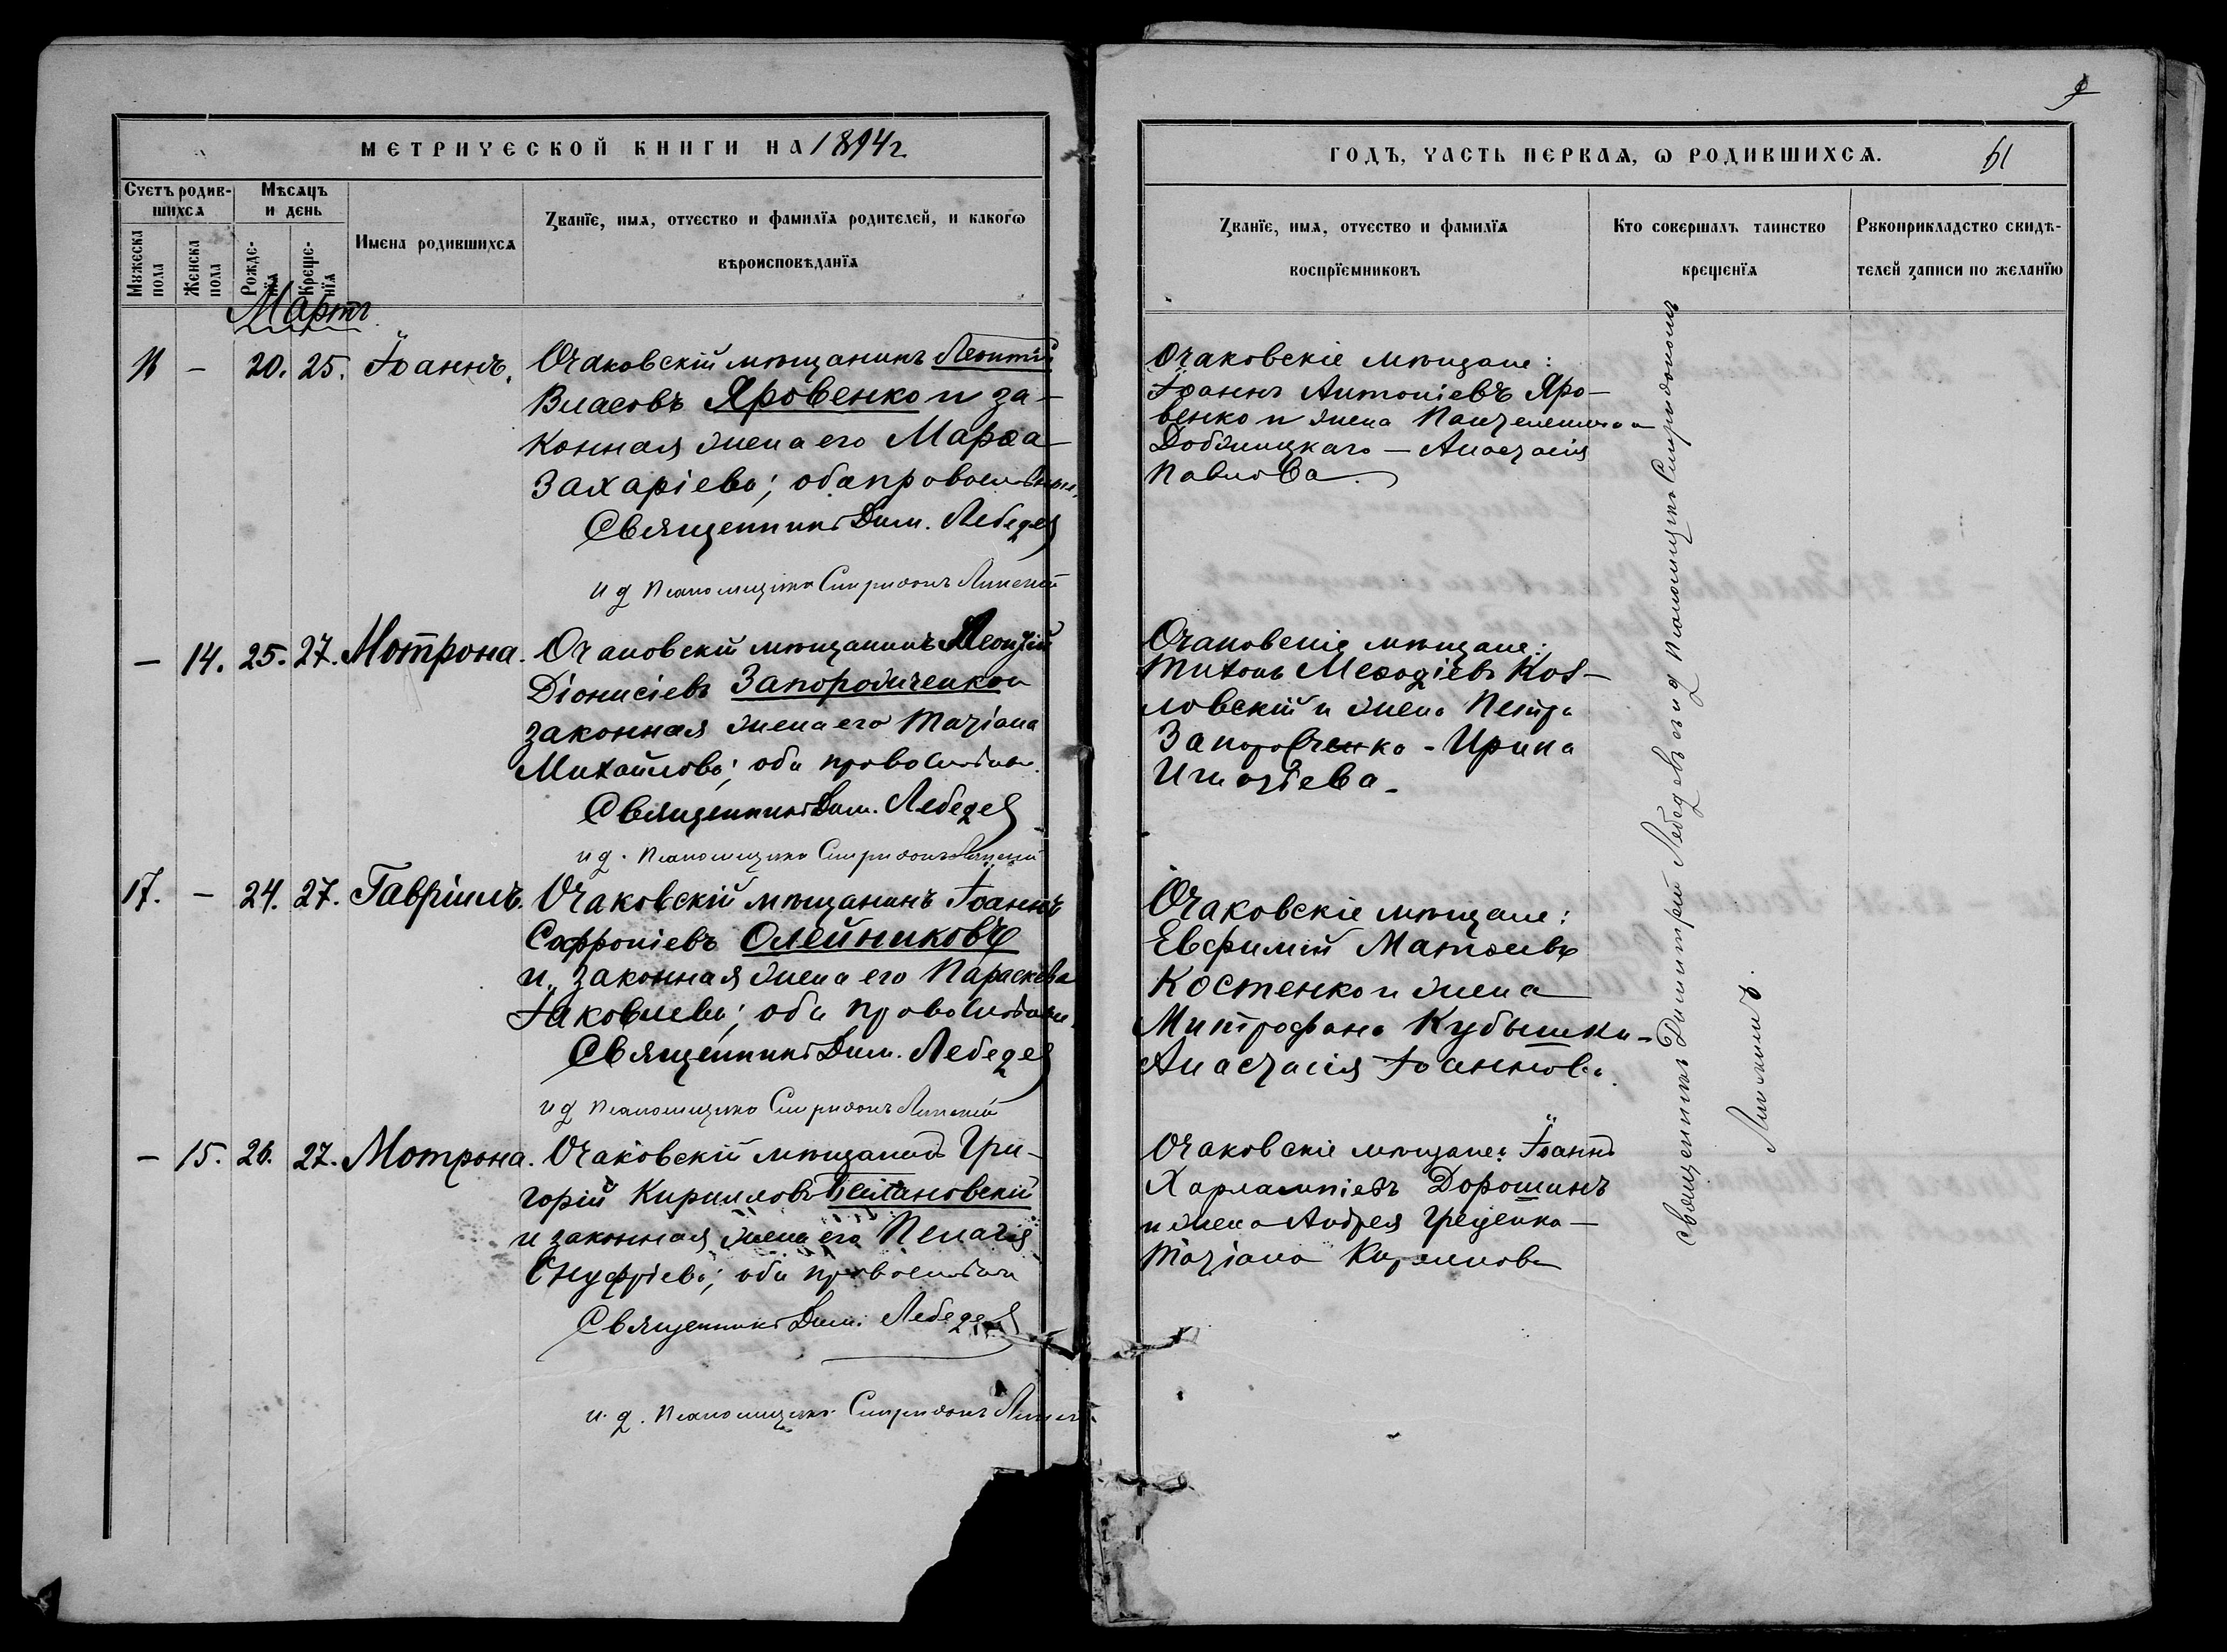 МЕТРИЧЕСКОЙ КНИГИ НА 1894 г.
Счетъ родив-
шихся
Мѣсяцъ
и день
Мꙋжеска
пола
Женска
пола
Рожде-
нїя
Креще-
нїя
Имена родившихся
Званїе, имя, отчество и фамилїя родителей, и какогѡ
вѣроисповѣданїя
Мартъ
16 — 20. 25. Іоаннъ.
Очаковскій мѣщанинъ Леонтій
Власовъ Яровенко и за-
конная жена его Марѳа
Захаріева; оба православн.
Священникъ Дим. Лебедев
и д псаломщика Спиридонъ
— 14. 25. 27. Мотрона.
Очаковскій мѣщанинъ Леонтій
Діонисіевъ Запорожченко и
законная жена его Татіана
Михайлова; оба православн.
Священникъ Дим. Лебедев
и д. псаломщика Спиридонъ
17. — 24. 27. Гавріилъ.
Очаковскій мѣщанинъ Іоаннъ
Софроніевъ Олейниковъ
и законная жена его Параскева
Іаковлева; оба православн.
Священникъ Дим. Лебедев
и д псаломщика Спиридонъ
— 15. 26. 27. Мотрона.
Очаковскій мѣщанинъ Гри-
горій Кирилловъ
и законная жена его Пелагія
Онуфріева; оба православн
Священникъ Дим. Лебедев
и. д. псаломщика Спиридонъ
9
ГОДЪ, ЧАСТЬ ПЕРВАЯ, Ѡ РОДИВШИХСЯ.
61
Званїе, имя, отчество и фамилїя
воспрїемниковъ
Кто совершалъ таинство
крещенїя
Рꙋкоприкладство свидѣ-
телей записи по желанїю
Очаковскіе мѣщане:
Іоаннъ Антоніевъ Яро-
венко и жена
— Анастасія
Павлова.
Очаковскіе мѣщане:
Тихонъ Меѳодіевъ Коз-
ловскій и жена Петра
Запорожченко - Ирина
Игнатіева.
Очаковскіе мѣщане:
Евфимій Матѳеевъ
Костенко и жена
Митрофана Кубышки-
Анастасія Іоаннова.
Очаковскіе мѣщане: Іоаннъ
Харлампіевъ Дорошинъ
и жена Андрея Грещенка —
Татіана Кириллова
священникъ Димитрій Лебедевъ и д псаломщика Спиридономъ